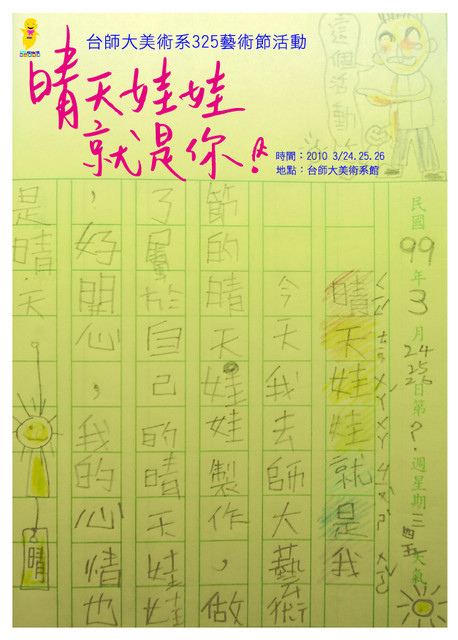 台師大美術系325藝術節活動
晴天娃娃
就是你!
時間：2010 3/24.25.26
地點：台師大美術系館
這個活動
民國99年3月24 25 26日第?週星期三四五天氣
晴天娃娃就是我
今天我去師大藝術
節的晴天娃娃製作，做
了屬於自己的晴天娃娃
，好開心，我的心情也
是晴天
晴